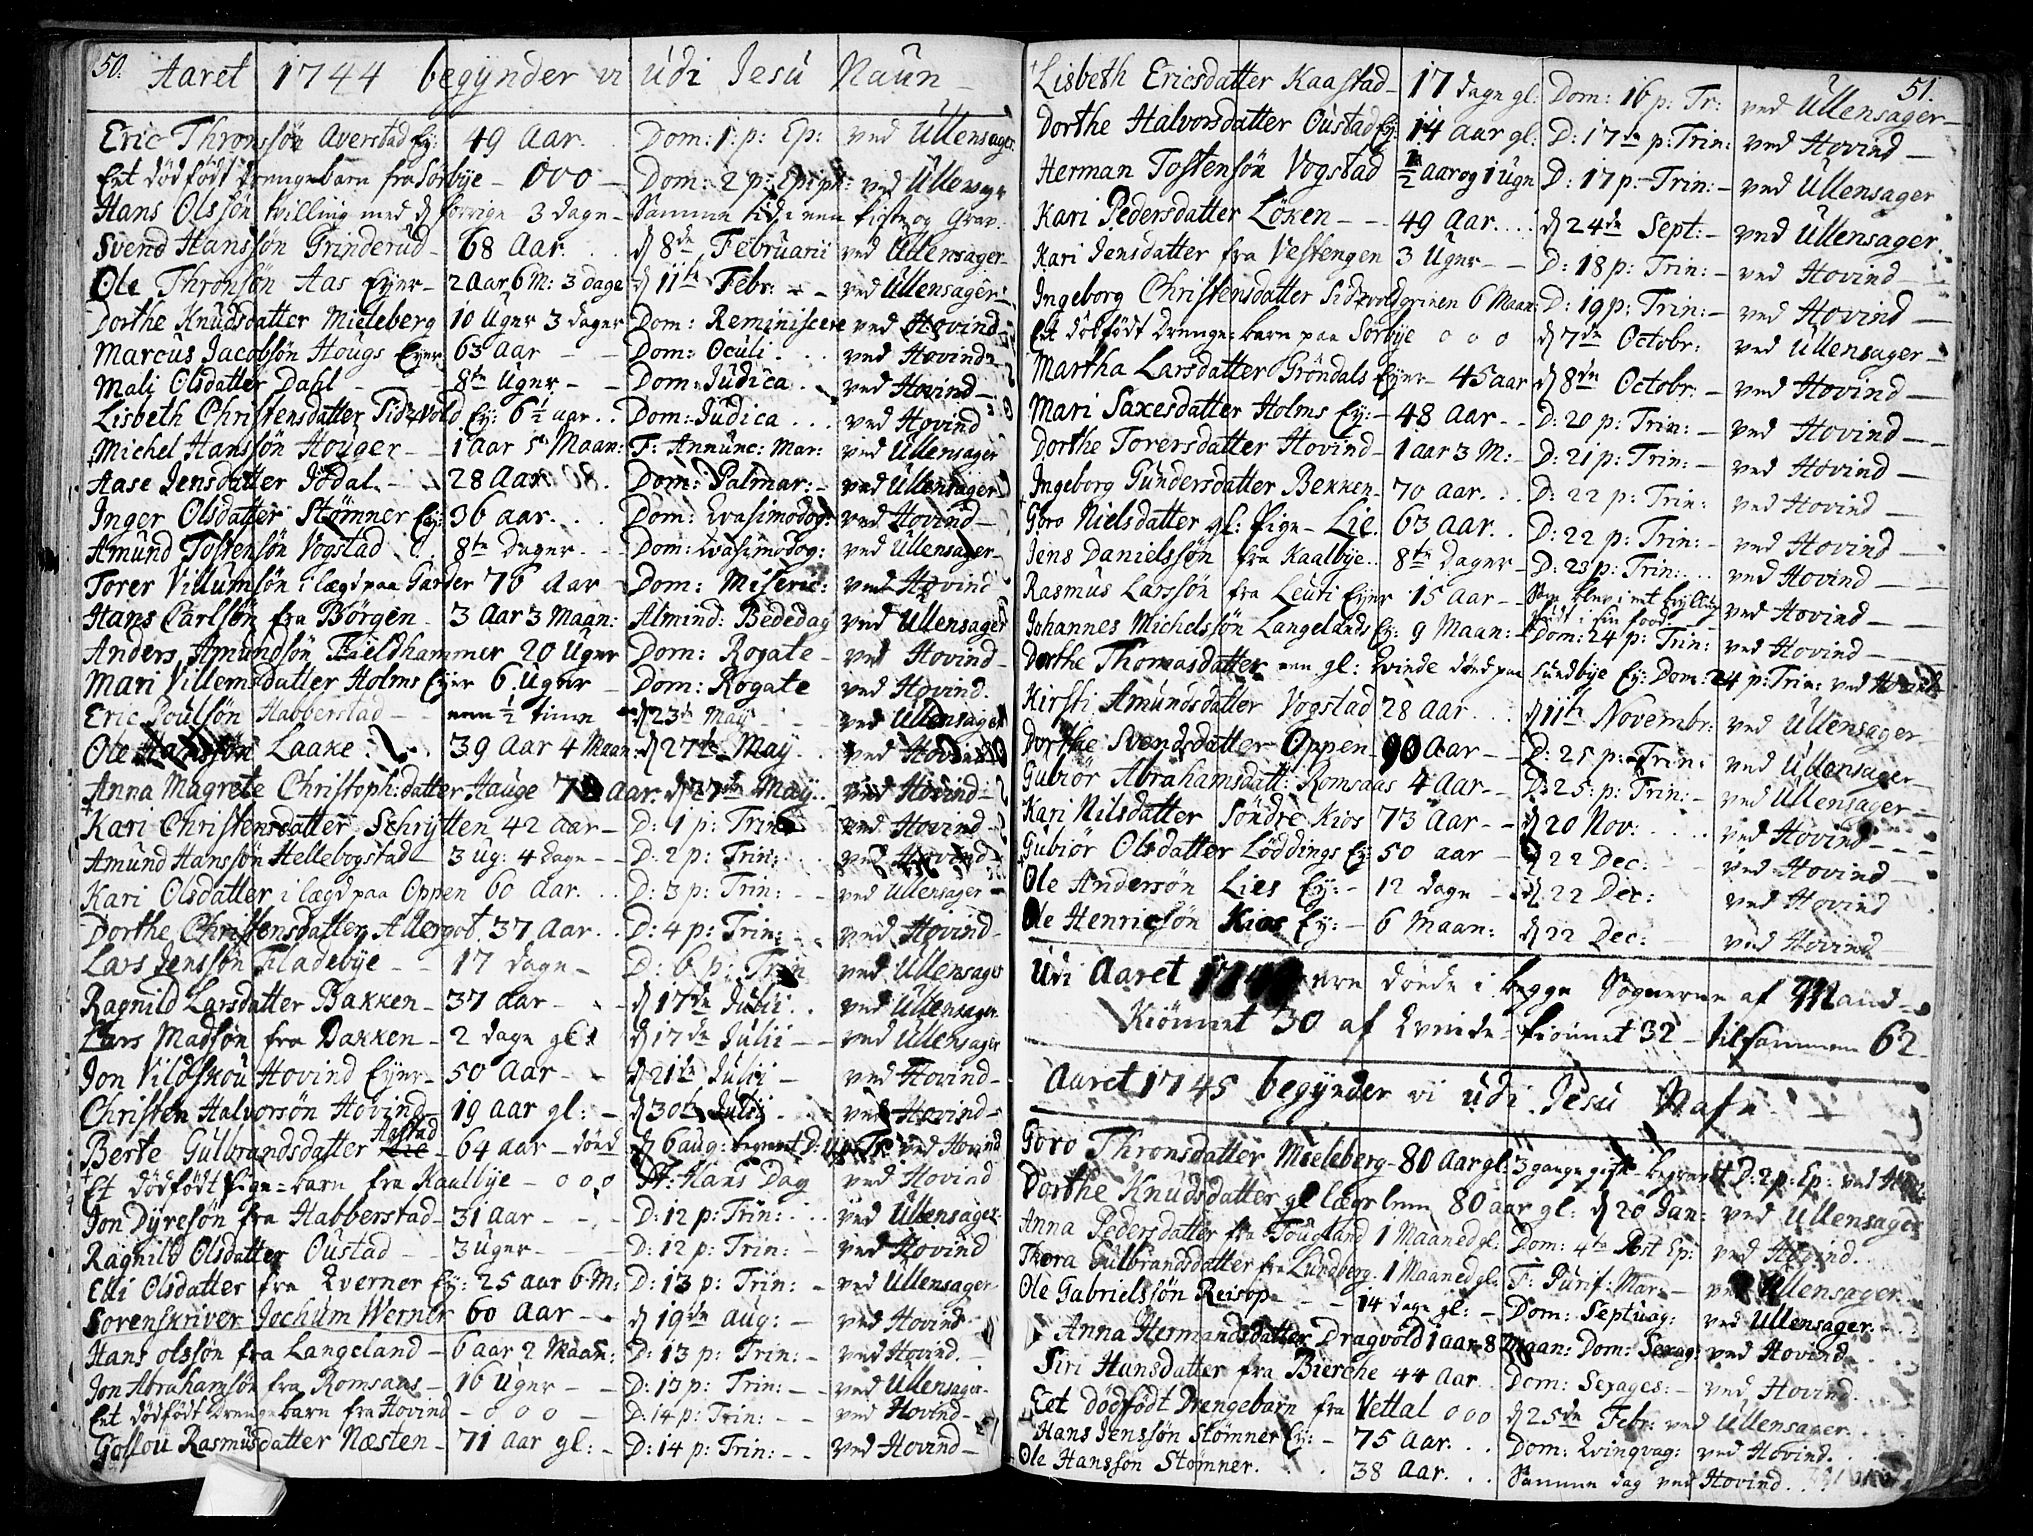 50.
Aaret 1744 begÿnder vi udi Jesu Naun
Eric Thronssön Averstad Eÿ: 49 Aar. Dom: 1. p: Ep: ved Ullensager
Eet dödfödt Drengebarn fra Sorbÿe - 000 - Dom: 2 p: Epiph: ved Ullensager
Hans Olssön tvilling med d forrige 3 dage - Samme tid i een kiste og Grav.
Svend Hanssön Grinderud - 68 Aar. d 8de Februarii ved Ullensager -
Ole Thronsön Aas Eÿer - 2 Aar 6 M: 3 dage d 11te Febr: - - ved Ullensager -
Dorthe Knudsdatter Mieleberg 10 Uger 3 dager Dom: Reminiscere ved Hovind -
Marcus Jacobsön Hougs Eÿer 63 Aar - - Dom: Oculi . ved Hovind -
Mali Olsdatter Dahl - - 8te Uger - - Dom: Judica . ved Hovind -
Lisbeth Christensdatter Tidzvold Eÿ: 6½ aar . . Dom: Judica . . . ved Hovind
Michel Hanssön Houger - - 1 Aar 5 Maan: F: Annunc: Mar: ved Ullensager
Aase Jensdatter Jödal - - 28 Aar. Dom: Palmar: - ved Ullensager
Inger Olsdatter Stömner Eÿ: 36 aar. . . Dom: Qvasimodog: ved Hovind -
Amund Tostensön Vogstad . . 8te Dager - - Dom: Qvasimodog: ved Ullensager -
Torer Villumsön i lægd paa Garder 76 Aar - Dom: Miseric: ved Hovind
Hans Carlsön fra Börgen - 3 Aar 3 Maan: Almind: Bededag ved Ullensager
Anders Amundsön Fieldhammer 20 Uger Dom: Rogate - ved Hovind -
Mari Villemsdatter Holms Eÿer 6. Uger - Dom: Rogate ved Hovind.
Eric Poulsön Habberstad - - een ½ time d 23de Maÿ - - ved Ullensager
Ole Hanssön Laake . . 39 Aar 4 Maan: d 27de Maÿ . ved Hovind
Anna Magrete Christoph:datter Hauge Aar. d 27de Maÿ . . ved Hovind -
Kari Christensdatter Schrÿtten 42 aar - D: 1 p: Trin: ved Hovind -
Amund Hanssön Hellebogstad - 3 ug: 4 dage - - D: 2 p: Trin: . . ved Hovind -
Kari Olsdatter i lægd paa Oppen 60 Aar. . . D: 3 p: Trin: - ved Ullensager -
Dorthe Christensdatter Allergot 37 Aar. . D: 4 p: Trin: - ved Hovind -
Lars Jenssön Fladebÿe - - 17 dage - D: 6 p: Trin ved Ullensager
Ragnild Larsdatter Bakken - 37 aar - - d 17de Julii . . ved Ullensager
Lars Madsön fra Bakken - 2 dage gl: d 17de Julii - - ved Ullensager
Jon Vildskou Hovind Eÿer - 50 Aar - - d 21de Julii - ved Hovind -
Christen Halvorsön Hovind - 19 aar gl: - d 30te Julii - ved Hovind -
Aastad
Berte Gulbrandsdatter - 64 aar - döed d 6 aug: begravet ved Hovind
Et dödfödt Pige=barn fra Kaulbÿe - 000 St: Hans Dag ved Hovind
Jon Dÿresön fra Habberstad - 31 aar - - D: 12 p: Trin: . . ved Ullensager -
Ragnild Olsdatter Oustad - - 3 uger - - D: 12 p: Trin: - ved Hovind
Elli Olsdatter fra Qverner Eÿ: 25 aar 6 M: D: 13 p: Trin: - ved Ullensager -
Sorenskriver Jochum Werner 60 Aar - . d 19de aug: - ved Hovind -
Hans olssön fra Langeland - 6 aar 2 Maan: D: 13 p: Trin: - - ved Hovind. -
Jon Abrahamsön fra Romsaas - 16 Uger - - D: 13 p: Trin: - - ved Ullensager -
Eet dödfödt Drengebarn fra Hovind - 0 0 0 - D: 14 p: Trin: - - ved Hovind -
Goslou Rasmusdatter Næsten - 71 Aar gl: - D: 14 p: Trin: - - ved Hovind -
51.
Lisbeth Ericsdatter Kaastad - 17 dage gl: Dom: 16 p: Tr: ved Ullensager -
Dorthe Halvorsdatter Oustad Eÿ: 14 aar gl: D: 17de p: Trin: ved Hovind -
Herman Tostensön Vogstad ½ aar og 1 Uge D: 17 p: Trin: - ved Ullensager
Kari Pedersdatter Löken - - 49 Aar. . . . d 24de Sept: - ved Ullensager.
Kari Jensdatter fra Vestengen 3 Uger - - D: 18 p: Trin: - ved Hovind -
Ingeborg Christensdatter Tidzvoldgrinen 6 Maan: D: 19 p: Trin: - ved Hovind -
Et dödfödt Drenge=barn paa Sorbÿe 0 0 0 d 7de Octobr: ved Ullensager -
Martha Larsdatter Gröndals Eÿer - 45 aar d 8de Octobr. - ved Hovind -
Mari Saxesdatter Holms Eÿ: - 48 Aar. - - D: 20 p: Trin: - ved Hovind -
Dorthe Torersdatter Hovind - 1 aar 3 M: - D: 21 p: Trin: - ved Hovind -
Ingeborg Gundersdatter Bekken - 70 Aar. . . D: 22 p: Trin: ved Hovind -
Goro Nielsdatter gl: Pige - Lie. 63 Aar. . D: 22 p: Trin: - ved Hovind -
Jens Danielssön fra Kaalbÿe . . 8te Dager - D: 23 p: Trin: . . . ved Hovind -
Rasmus Larssön fra Leuti Eÿer 15 Aar - - ved Hovind -
Johannes Michelssön Langelands Eÿ: 9 Maan: - Dom: 24 p: Trin: ved Hovind -
Dorthe Thomasdatter een gl: Qvinde döed paa Sundbÿe Eÿ: Dom: 24 p: Trin: ved Hovind
Kirsti Amundsdatter Vogstad 28 Aar. . . . d 11te Novembr: ved Ullensager -
Dorthe Svendsdatter Oppen 90 Aar - - D: 25 p: Trin: ved Ullensager -
Gubiör Abrahamsdatt: Romsaas 4 Aar - - D: 25: p: Trin: - ved Ullensager -
Kari Nilsdatter Söndre Kios 73 Aar - - d 20 Nov: . . . ved Hovind - - -
Gubiör Olsdatter Löddings Eÿ: 50 aar - d 22 Dec: ved Hovind -
Ole Andersön Lies Eÿ: - 12 dage - d 22 Dec: ved Hovind
Ole Henricsön Kios Eÿ: - 6 Maan: d 22 Dec: - ved Hovind -
Udi Aaret 1744 ere döede i begge Sognerne af Mand-
Kiönnet 30 af Qvinde-kiönnet 32 - tilsammen 62
Aaret 1745 begÿnder vi udi Jesu Nafn -
Goro Thronsdatter Mieleberg - 80 Aar gl: 3 gange gift - begravet D: 2 p: Ep: ved
Dorthe Knudsdatter gl lægs lem 80 aar gl: d 20 Jan: ved Ullensager
Anna Pedersdatter fra Fougland 1 Maaned gl: Dom: 4te Post Ep: ved Hovind.
Thora Gulbrandsdatter fra Lundberg. 1 Maaned gl: F: Purif: Mar: - ved Ullensager
Ole Gabrielssön Reisop - - 14 dage gl: - Dom: Septuag: ved Ullensager.
Anna Hermandsdatter Dragvold 1 aar 8 Maan: Dom: Sexag: ved Hovind
Siri Hansdatter fra Bierche 44 Aar. . Dom: Sexages: - ved Hovind.
Eet dödfödt Drengebarn fra Vettal 000 d 25de Febr: ved Ullensager.
Hans Jenssön Stömner Eÿ: - 75 Aar. . . Dom: Qvinqvag: ved Hovind.
Ole Hanssön Stömner. . . 38 Aar. . . Samme dag ved Hovind . . .